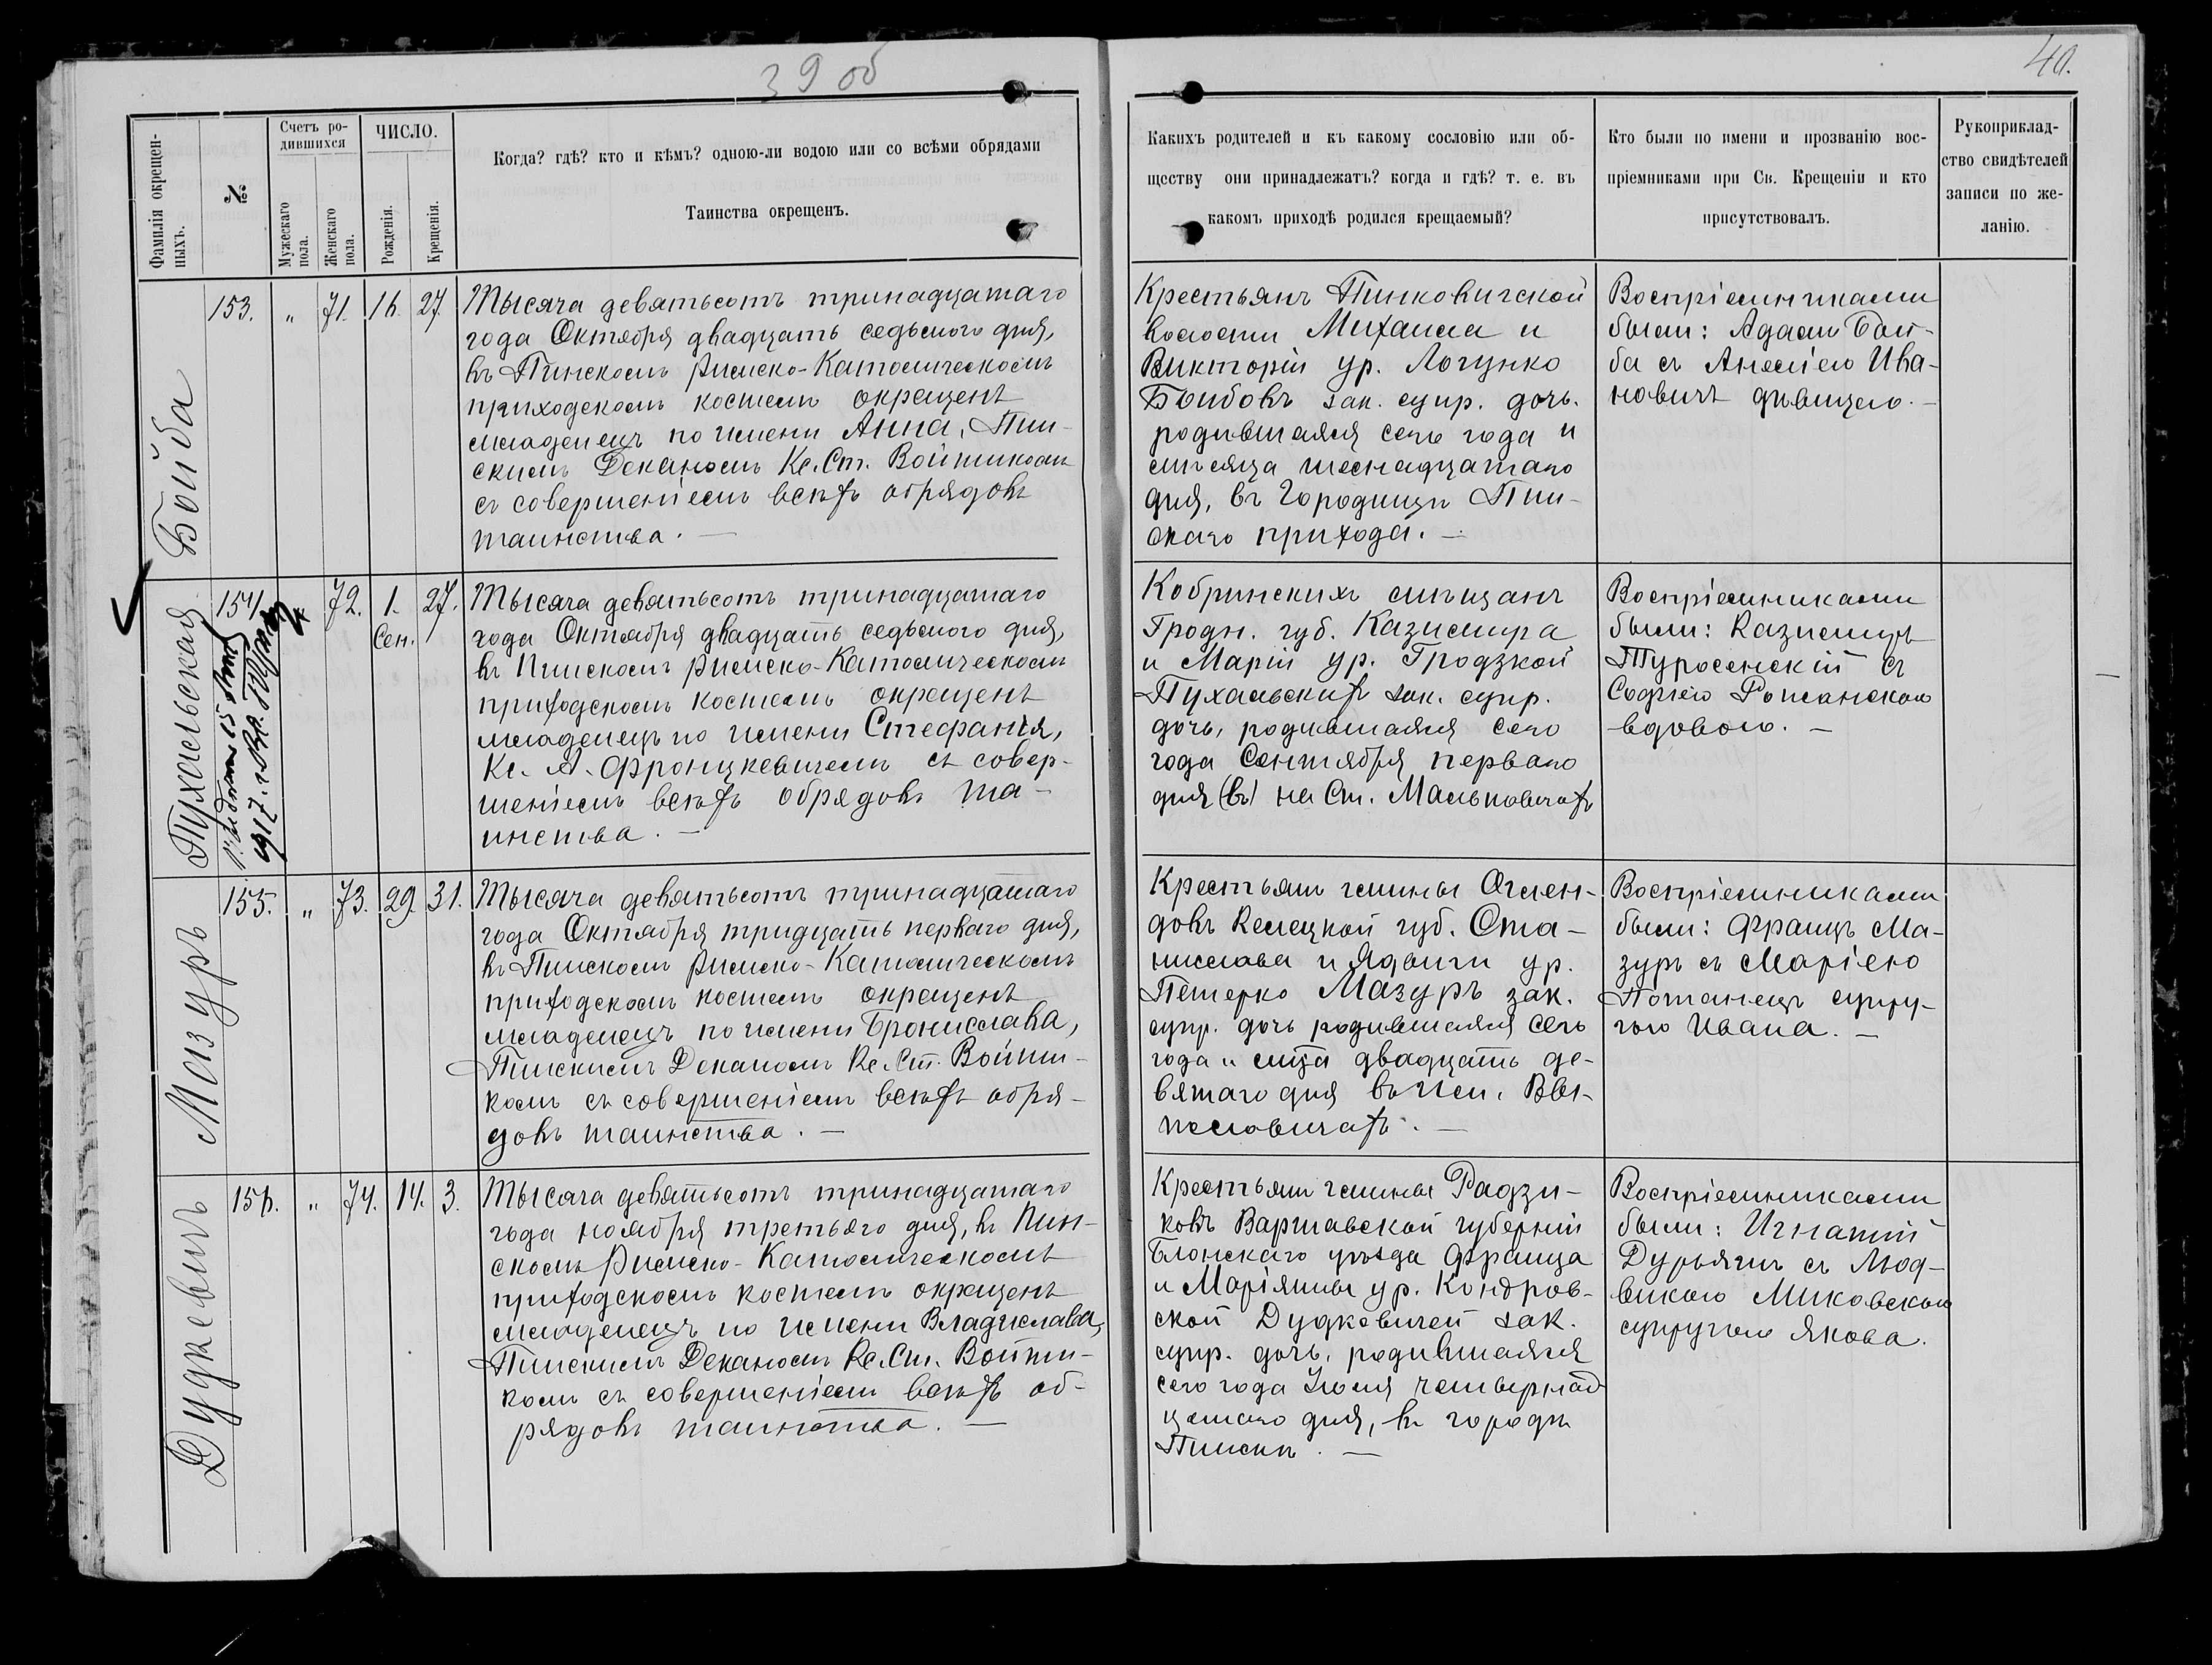 39 об
40.
Фамилія окрещен-
ныхъ.
№
Счетъ ро-
дившихся
Мужескаго
пола.
Женскаго
пола.
ЧИСЛО.
Рожденія.
Крещенія.
Когда? гдѣ? кто и кѣмъ? одною-ли водою или со всѣми обрядами
Таинства окрещенъ.
Какихъ родителей и къ какому сословію или об-
ществу они принадлежатъ? когда и гдѣ? т. е. въ
какомъ приходѣ родился крещаемый?
Кто были по имени и прозванію вос-
пріемниками при Св. Крещеніи и кто
присутствовалъ.
Рукоприклад-
ство свидѣтелей
записи по же-
ланію.
Бойба
153. " 71. 16. 27.
Тысяча девятьсотъ тринадцатаго
года Октября двадцать седьмого дня,
въ Пинскомъ Римско-Католическомъ
приходскомъ костелѣ окрещенъ
младенецъ по имени Анна, Пин-
скимъ Деканомъ Кс. Ст. Войтикомъ
съ совершеніемъ всѣхъ обрядовъ
таинства. —
Крестьянъ Пинковичской
волости Михаила и
Викторіи ур. Логунко
Бойбовъ зак. супр. дочь.
родившаяся сего года и
мѣсяца шеснадцатаго
дня, въ Городищѣ Пин-
скаго прихода. —
Воспріемниками
были: Адамъ Бой-
ба съ Анеліею Ива-
новичъ дѣвицею. —
Пухальская
154. " 72. 1. 27.
Сен.
1917 г.
Тысяча девятьсотъ тринадцатаго
года Октября двадцать седьмого дня,
въ Пинскомъ Римско-Католическомъ
приходскомъ костелѣ окрещенъ
младенецъ по имени Стефанія,
Кс. А. Фронцкевичемъ съ совер-
шеніемъ всѣхъ обрядовъ та-
инства. —
Кобринскихъ мѣщанъ
Гродн. губ. Казимира
и Маріи ур. Гродзкой
Пухальскихъ зак. супр.
дочь, родившаяся сего
года Сентября перваго
дня (въ) на Ст. Мальковичахъ
Воспріемниками
были: Казимиръ
Туросенскій съ
Софіею Рожанскою
вдовою. —
Мазуръ
155. " 73. 29. 31.
Тысяча девятьсотъ тринадцатаго
года Октября тридцать перваго дня,
въ Пинскомъ Римско-Католическомъ
приходскомъ костелѣ окрещенъ
младенецъ по имени Бронислава,
Пинскимъ Деканомъ Кс. Ст. Войти-
комъ съ совершеніемъ всѣхъ обря-
довъ таинства. —
Крестьянъ гмины Олеен-
довъ Келецкой губ. Ста-
нислава и Ядвиги ур.
Петерко Мазуръ зак.
супр. дочь родившаяся сего
года и мѣсяца двадцать де-
вятаго дня въ им. Вы-
пеловичахъ. —
Воспріемниками
были: Францъ Ма-
зуръ съ Маріею
Потанецъ супру-
гою Ивана. —
Дудкевичъ
156. " 74. 14. 3.
Тысяча девятьсотъ тринадцатаго
года ноября третьяго дня, въ Пин-
скомъ Римско-Католическомъ
приходскомъ костелѣ окрещенъ
младенецъ по имени Владислава,
Пинскимъ Деканомъ Кс. Ст. Войти-
комъ съ совершеніемъ всѣхъ об-
рядовъ таинства. —
Крестьянъ гмины Радзи-
ковъ Варшавской губерніи
Блонскаго уѣзда Франца
и Маріянны ур. Кондров-
ской Дудкевичей зак.
супр. дочь, родившаяся
сего года Іюля четырнад-
цатаго дня, въ городѣ
Пинскѣ. —
Воспріемниками
были: Игнатій
Дурьячъ съ Люд-
викою Миковскою
супругою Якова.